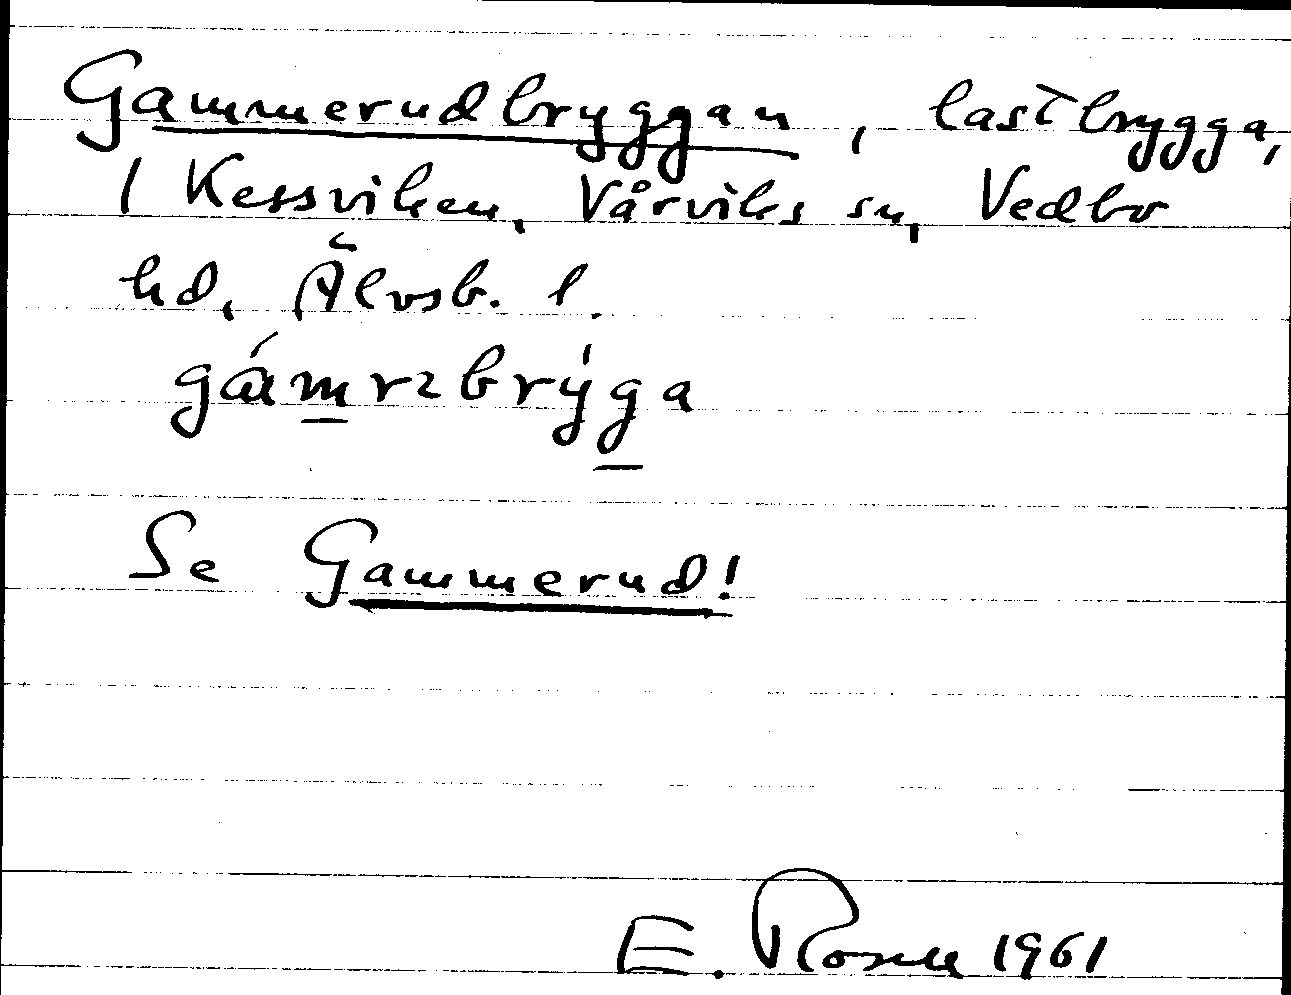 Gammerudbryggan, lastbrygga,
I Kessviken, Vårviks sn, Vedbo
hd, Älvsb. l.
gám̲rɩbrýg̲a
Se Gammerud!
E. Rosell 1961